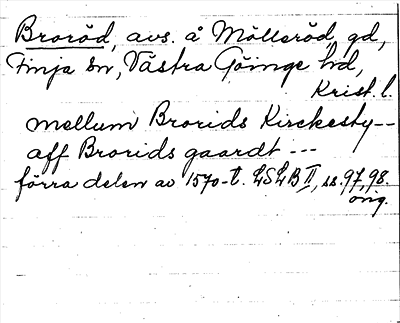 Broröd, avs. å Mölleröd, gd,
Finja sn, Västra Göinge hd,
Krist. l.
mellum Brorids Kirckesty--
aff Brorids gaardt ---
förra delen av 1570-t. LSLB II, ss. 97, 98.
orig.